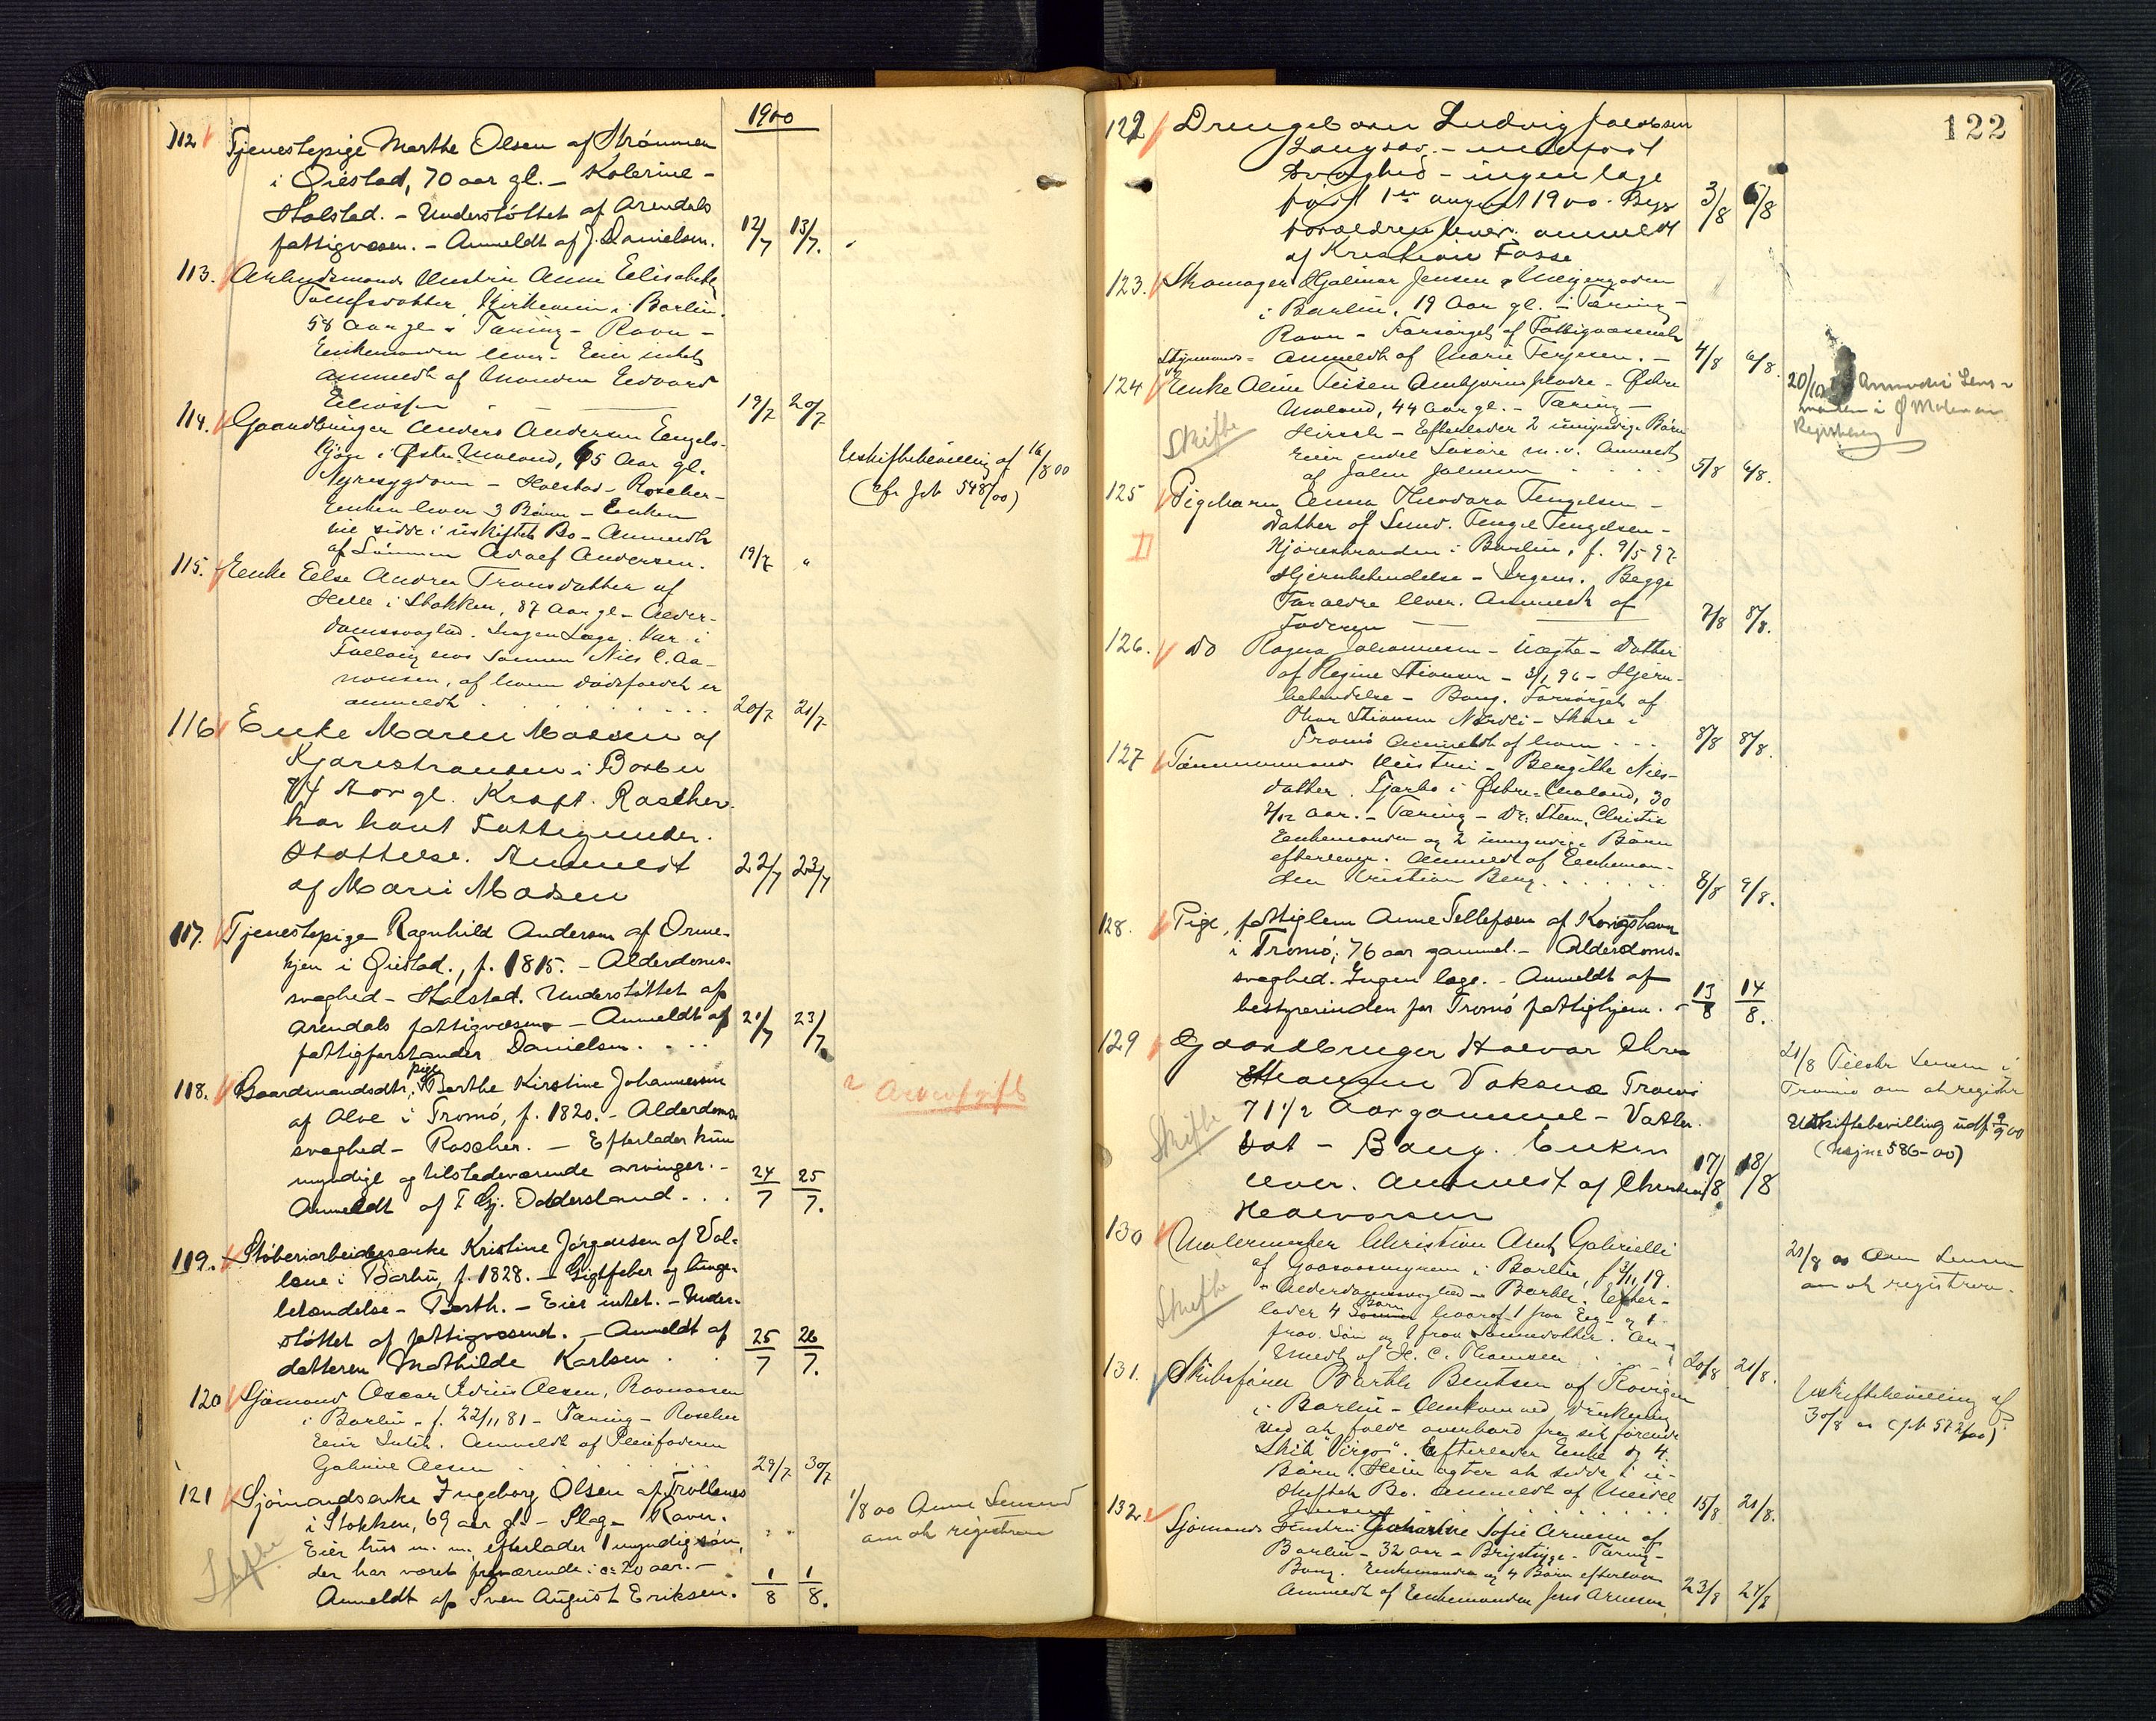 1900
112 Tjenestepige Marthe Olsen af Strømmen
i Øiestad, 70 aar gl. - Kolerine -
Stalstad. - Understøttet af Arendals
fattigvæsen. - Anmeldt af J. Danielsen. 12/7 13/7.
113. Arbeidsmands Hustru Anne Elisabeth
Tollefsdatter, Kirkeveien i Barbu.
58 Aar gl. - Tæring - Ravn -
Enkemanden lever - Eier intet
anmeldt af Manden Edvard
Eliassen 19/7 20/7
114. Gaardbruger Anders Andersen Engels-
kjøn i Østre Moland, 65 Aar gl.
Nyresygdom - Stalstad - Roscher -
Enken lever 3 Børn - Enken
vil sidde i uskiftet Bo - Anmeldt
af Sønnen Adolf Andersen. 19/7 "
Uskiftebevilling af 16/8 00
(cfr Jr 548/00)
115. Enke Else Andrea Tronsdatter af
Helle i Stokken, 87 Aar gl - Alder-
domssvaghed. Ingen Læge. Var i
Follaug hos Sønnen Niels C. Aa-
nonsen, af hvem dødsfaldet er
anmeldt 20/7 21/7
116 Enke Maren Madsen af
Kjærestranden i Barbu
84 Aar gl. Kræft. Roscher.
har havt Fattigunder-
støttelse. Anmeldt
af Marie Madsen 22/7 23/7
117. Tjenestepige Ragnhild Andersen af Orme-
kjen i Øiestad, f. 1815. - Alderdoms-
svaghed - Stalstad. Understøttet af
Arendals fattigvæsen - Anmeldt af
fattigforstander Danielsen. 21/7 23/7.
118. Gaardmandsdtr, pige Berthe Kirstine Johannesen
af Alve i Tromø, f. 1820. - Alderdoms-
svaghed - Roscher. - Efterlader kun
myndige og tilstedeværende arvinger. -
Anmeldt af T. Gj. Oddersland. 24/7 25/7.
? Arveafgift
119. Støberiarbeidersenke Kristine Jørgensen af Vol-
lene i Barbu, f. 1828. - Gigtfeber og lunge-
betændelse - Barth. - Eier intet. - Under-
støttet af fattigvæsenet. - Anmeldt af
datteren Mathilde Karlsen. 25/7 26/7.
120 Sjømand Oscar Olsen, Ravnaasen
i Barbu - f. 22/11 81 - Tæring - Roscher
Eier Intet. Anmeldt af Pleiefaderen
Gabriel Olsen 29/7 30/7
121 Sjømandsenke Ingeborg Olsen af Trollenes
i Stokken, 69 aar gl. - Slag - Ravn.
Eier hus m. m., efterlader 1 myndig søn,
der har været fraværende i ca 20 aar. -
Anmeldt af Sven August Eriksen. 1/8 1/8.
Skifte
1/8 00 Anm Lensmd
om at registrere
122
122 Drengebarn Ludvig Jacobsen
Langsæ. - medfødt
svaghed - ingen læge
født 1ste august 1900. Begge
forældre lever. anmeldt
af Kristian Fosse 3/8 6/8
123. Skomager Hjalmar Jensen
i Barbu, 19 Aar gl. - Tæring -
Ravn - Forsørget af Fattigvæsenet
Anmeldt af Marie Terjesen. - 4/8 6/8.
124 Styrmands- Enke Aline Teisen - Østre
Moland, 44 Aar gl. - Tæring -
Hirsch - Efterlader 2 umyndige Børn
Eier endel Løsøre m. v. Anmeldt
af 5/8 6/8.
Skifte
125 Pigebarn Anna Theodora Tengelsen -
Datter af Tengel Tengelsen -
Kjærestranden i Barbu, f. 9/5 97
Hjernebetændelse - Jørgens. Begge
Forældre lever. Anmeldt af
Faderen 7/8 8/8.
126. do Ragna Johannesen - Uægte - Datter
af Regine Stiansen - 3/1 96 - Hjerne-
betændelse - Bang. Forsørget af
Stiansen Skare i
Tromø Anmeldt af ham 8/8 8/8.
127 Tømmermands Hustru - Bergitte Niels-
datter. i Østre Moland, 30
Aar. - Tæring - Dr. Steen, Christia
Enkemanden og 2 umyndige Børn
efterlever. Anmeldt af Enkeman-
den Kristian Berg. 8/8 9/8.
128. Pige, fattiglem Anne Tellefsen af Kongshavn
i Tromø, 76 aar gammel. - Alderdoms-
svaghed. Ingen læge. - Anmeldt af
bestyrerinden for Tromø fattighjem. - 13/8 14/8.
129 Gaardbruger Halvor
Voksnæ Tromø
71 1/2 Aar gammel - Vatter-
sot - Bang. Enken
lever. Anmeldt af Christian
Halvorsen 17/8 18/8
Skifte
21/8 Tilskr Lensm i
Tromø om at registr
Uskiftebevilling udf 9/9 00
586-00)
130 Malermester Christian Arnt Gabrielli
af Gaasaasmyren i Barbu, f 3/11 19.
- Alderdomssvaghed - Barth. Efter-
lader 4 Børn hvoraf 1 fra Eg - og 1
frav. Søn og 1 frav. Sønnedatter. An-
meldt af H. C. Thomsen 20/8 21/8.
Skifte
21/8 00 Anm Lensm
om at registrere.
131. Skibsfører Barth Bentsen af Kovigen
i Barbu - Omkommet ved Drukning
ved at falde overbord fra sit førende
Skib "Virgo". Efterlader Enke og 4
Børn. Hun agter at sidde i u-
skiftet Bo. Anmeldt af
Jensen 15/8 21/8.
Uskiftebevilling af
30/8 00 (Jr 572/00)
132. Sjømands Hustru Sofie Arnesen af
Barbu - 32 aar - Brystsyge - Tæring -
Bang. Enkemanden og 4 Børn efterlever
Anmeldt af Enkemanden Jens Arnesen 23/8 24/8